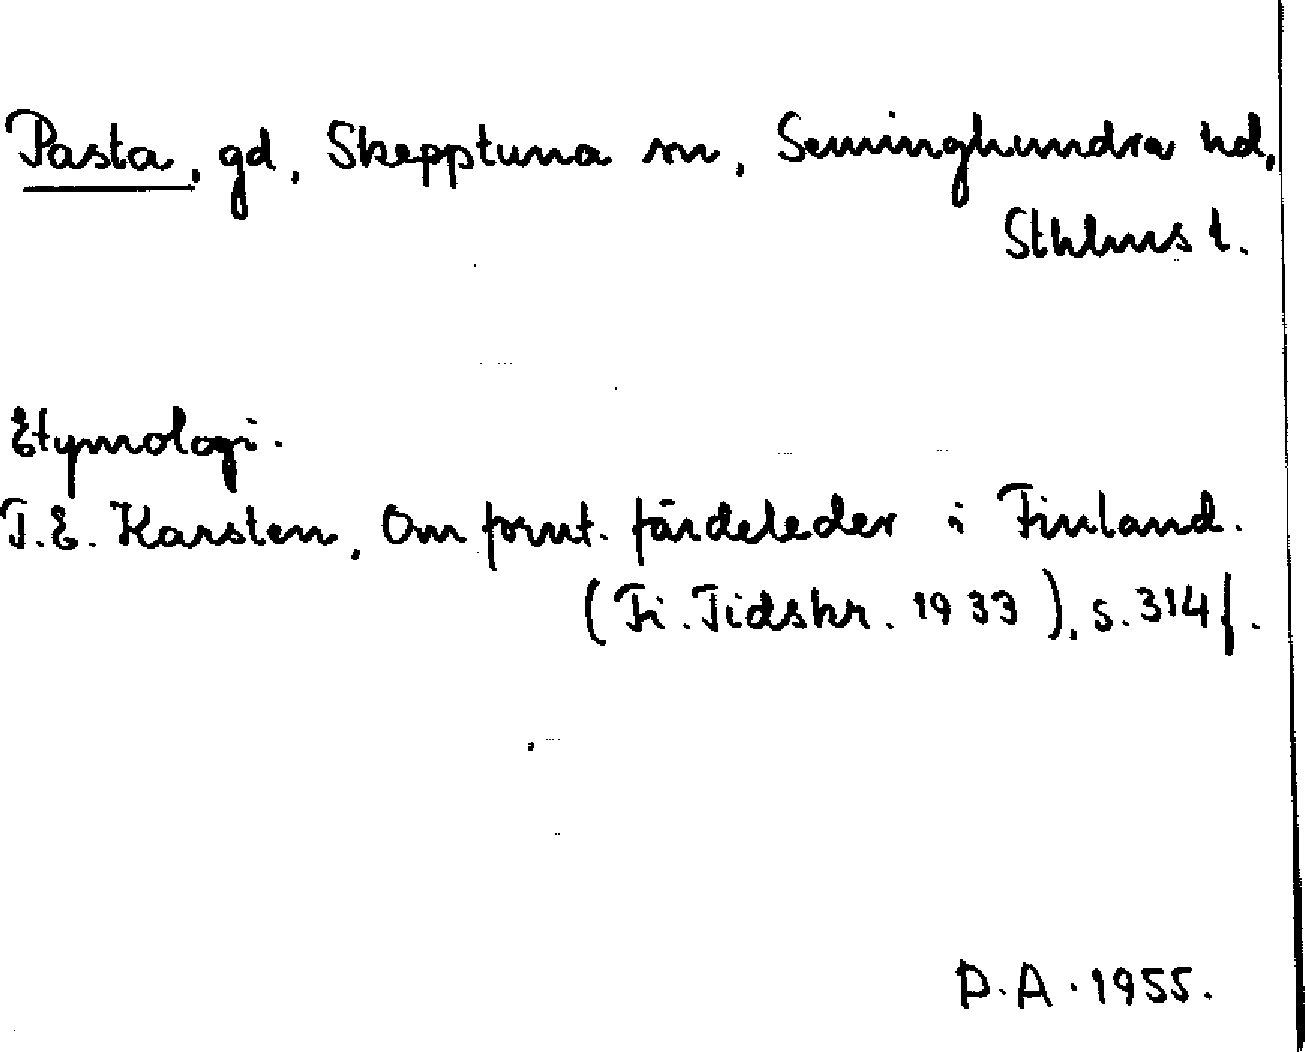 Pasta, gd, Skepptuna sn, Seminghundra hd,
Sthlms l.
Etymologi.
T.E. Karsten, Om fornt. färdeleder i Finland.
(Fi. Tidskr. 1933), s. 314 f.
D.A. 1955.